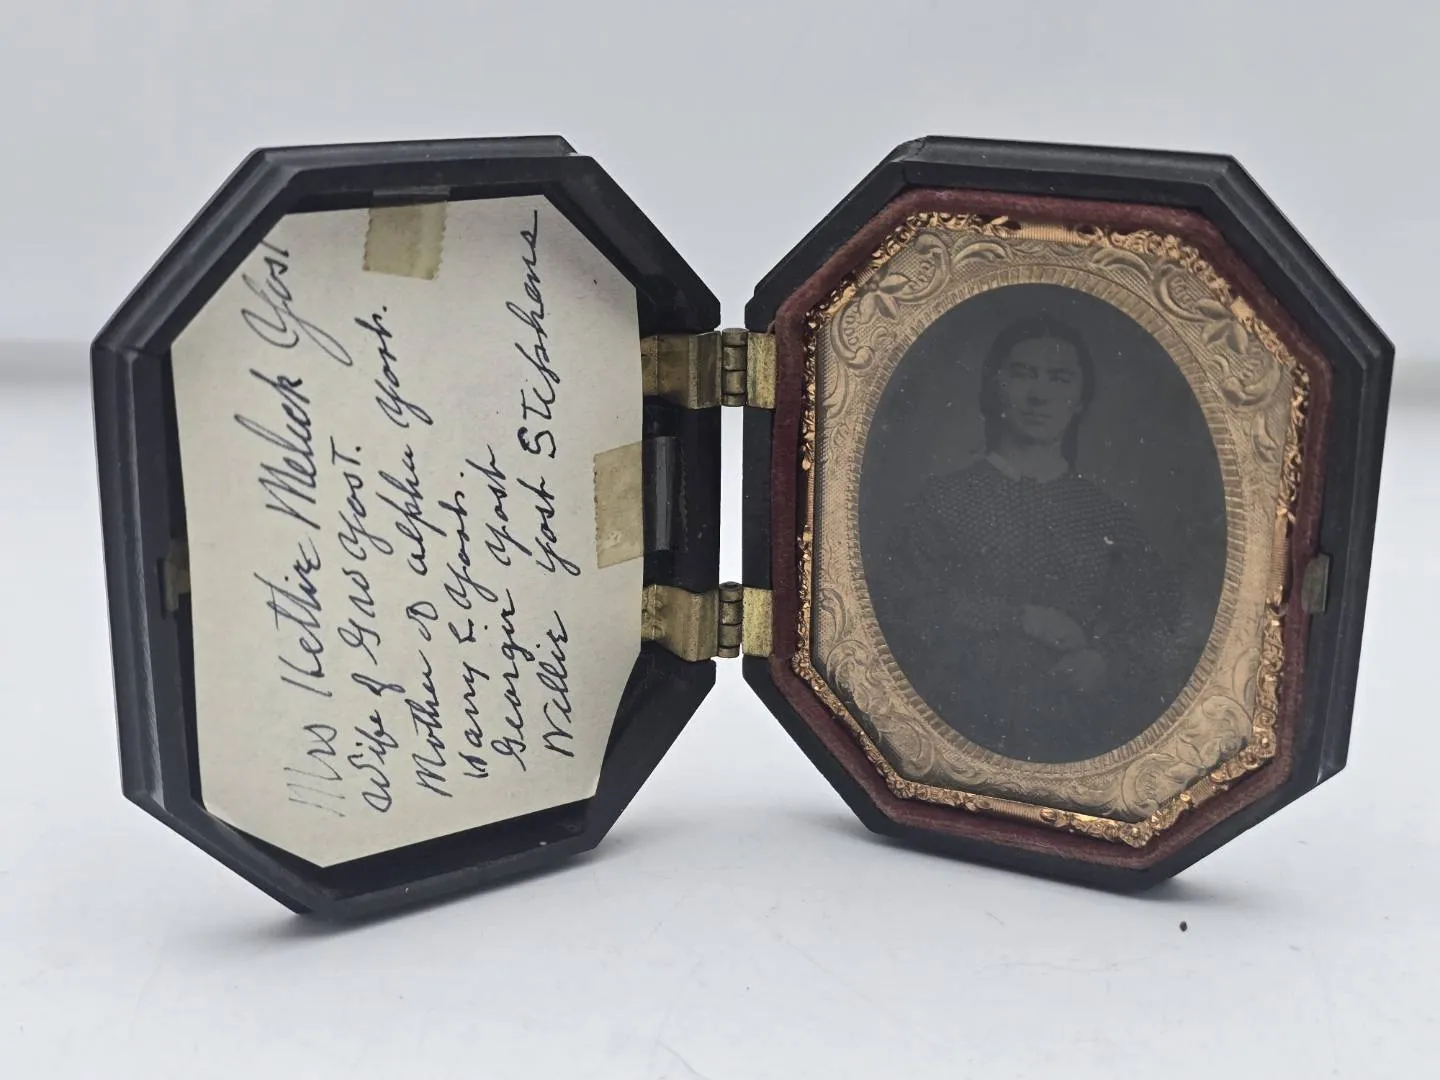 Mrs Hettie Meluck Yost
Wife of Geo Yost.
Mother of Alpha Yost.
Harry E. Yost.
Georgie Yost
Willie Yost Stephens